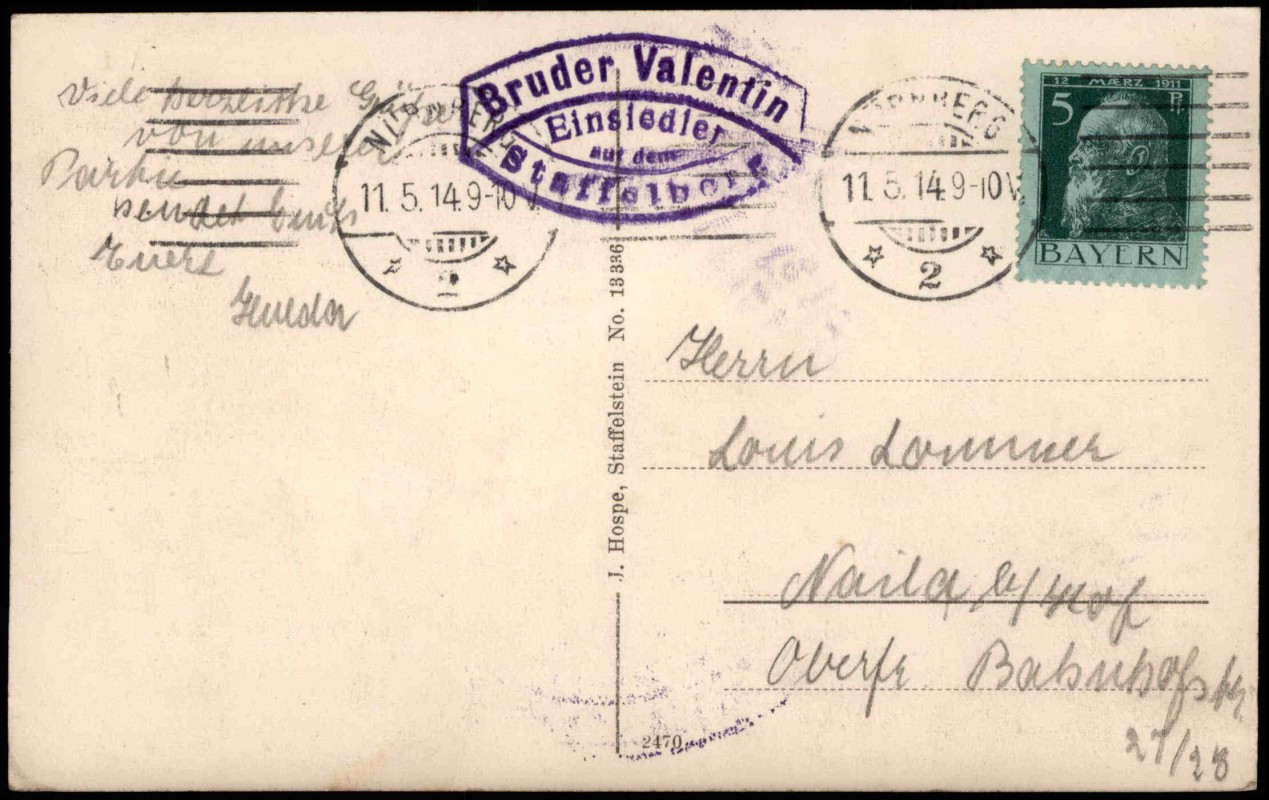 Bruder Valentin
Einsiedler
auf dem
Staffelberg
NÜRNBERG
11. 5. 14. 9-10 V.
2
NÜRNBERG
11. 5. 14. 9-10 V.
2
12 MÆRZ 1911
5 Pf
BAYERN
Viele herzliche Grüße
von unserer
Partie
sendet Euch
Euere
Hulda
J. Hospe, Staffelstein No. 13336
Herrn
Louis Lommer
Naila b/Hof
Oberfr Bahnhofstr.
27/28
2470